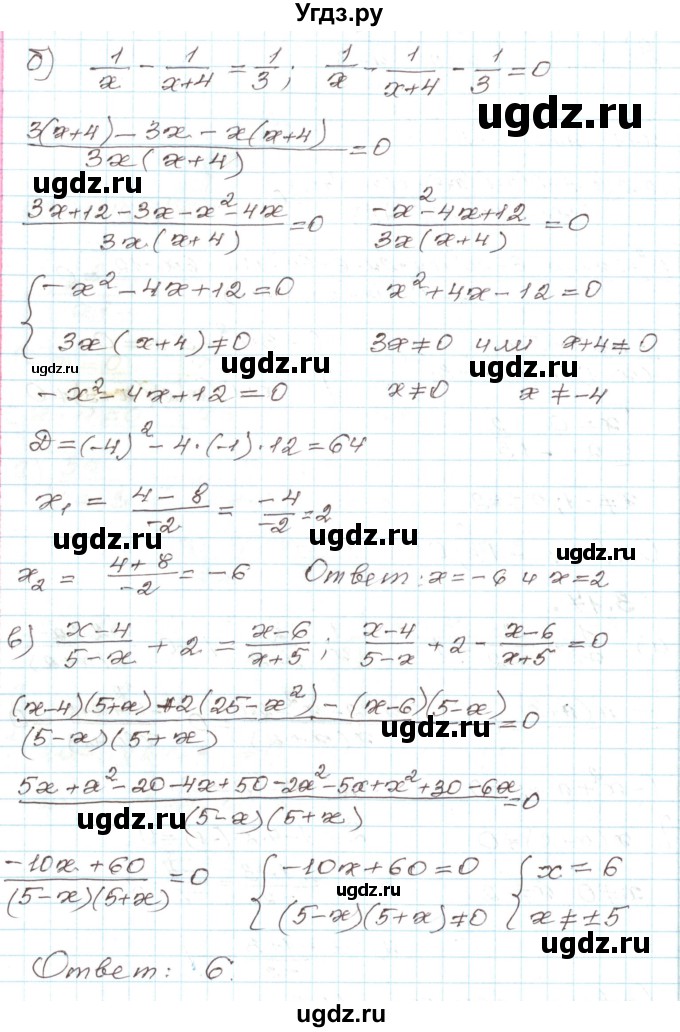 Угдз.ру
б) 1/x - 1/(x+4) = 1/3; 1/x - 1/(x+4) - 1/3 = 0
ugdz.ru
(3(x+4) - 3x - x(x+4))/(3x(x+4)) = 0
ugdz.ru
(3x+12-3x-x²-4x)/(3x(x+4)) = 0 (-x²-4x+12)/(3x(x+4)) = 0
{ -x²-4x+12=0 x²+4x-12=0
3x(x+4)≠0 3x≠0 или x+4≠0
ugdz.ru ugdz.ru ugdz.ru
-x²-4x+12=0 x≠0 x≠-4
Д=(-4)²-4·(-1)·12=64
x₁ = (4-8)/-2 = -4/-2 = 2
ugdz.ru ugdz.ru
x₂ = (4+8)/-2 = -6 Ответ: x=-6 и x=2
ugdz.ru
в) (x-4)/(5-x) + 2 = (x-6)/(x+5); (x-4)/(5-x) + 2 - (x-6)/(x+5) = 0
((x-4)(5+x)+2(25-x²)-(x-6)(5-x))/((5-x)(5+x)) = 0
ugdz.ru
(5x+x²-20-4x+50-2x²-5x+x²+30-6x)/((5-x)(5+x)) = 0
ugdz.ru
(-10x+60)/((5-x)(5+x)) = 0 { -10x+60=0 { x=6
ugdz.ru
(5-x)(5+x)≠0 x≠±5
ugdz.ru
Ответ: 6.
ugdz.ru